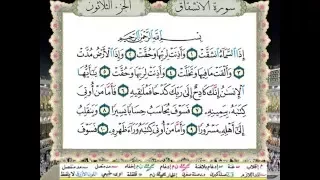 سورة الانشقاق
الجزء الثلاثون
بسم الله الرحمن الرحيم
إِذَا السَّمَاءُ انشَقَّتْ ١ وَأَذِنَتْ لِرَبِّهَا وَحُقَّتْ ٢ وَإِذَا الْأَرْضُ مُدَّتْ
٣ وَأَلْقَتْ مَا فِيهَا وَتَخَلَّتْ ٤ وَأَذِنَتْ لِرَبِّهَا وَحُقَّتْ ٥ يَا أَيُّهَا
الْإِنسَانُ إِنَّكَ كَادِحٌ إِلَىٰ رَبِّكَ كَدْحًا فَمُلَاقِيهِ ٦ فَأَمَّا مَنْ أُوتِيَ
كِتَابَهُ بِيَمِينِهِ ٧ فَسَوْفَ يُحَاسَبُ حِسَابًا يَسِيرًا ٨ وَيَنقَلِبُ
إِلَىٰ أَهْلِهِ مَسْرُورًا ٩ وَأَمَّا مَنْ أُوتِيَ كِتَابَهُ وَرَاءَ ظَهْرِهِ ١٠ فَسَوْفَ